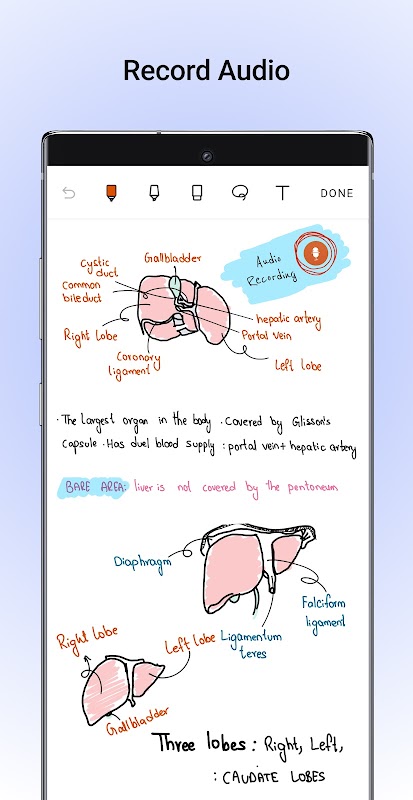 Record Audio
DONE
Audio
Recording
Gallbladder
Cystic
duct
Common
bile duct
hepatic artery
Portal vein
Right lobe
Coronary
ligament
Left lobe
· The largest organ in the body . Covered by Glisson's
Capsule . Has duel blood supply : portal vein + hepatic artery
BARE AREA: liver is not covered by the pentoneum
Diaphragm
Falciform
ligament
Right lobe
Left lobe
Ligamentum
teres
Gallbladder
Three lobes : Right, Left,
: CAUDATE LOBES